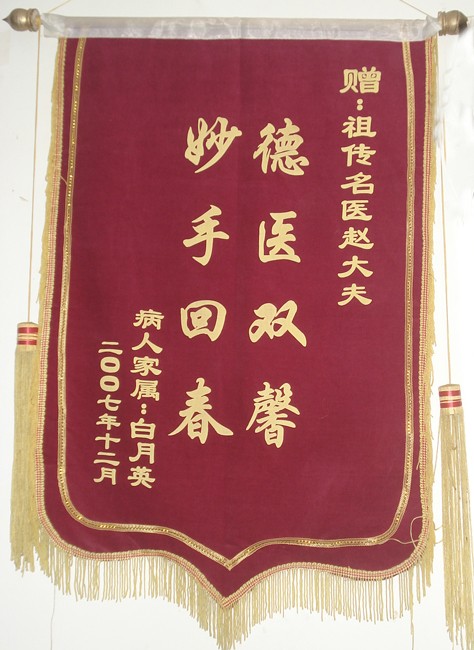 赠:祖传名医赵大夫
德医双馨
妙手回春
病人家属:白月英
二〇〇七年十二月